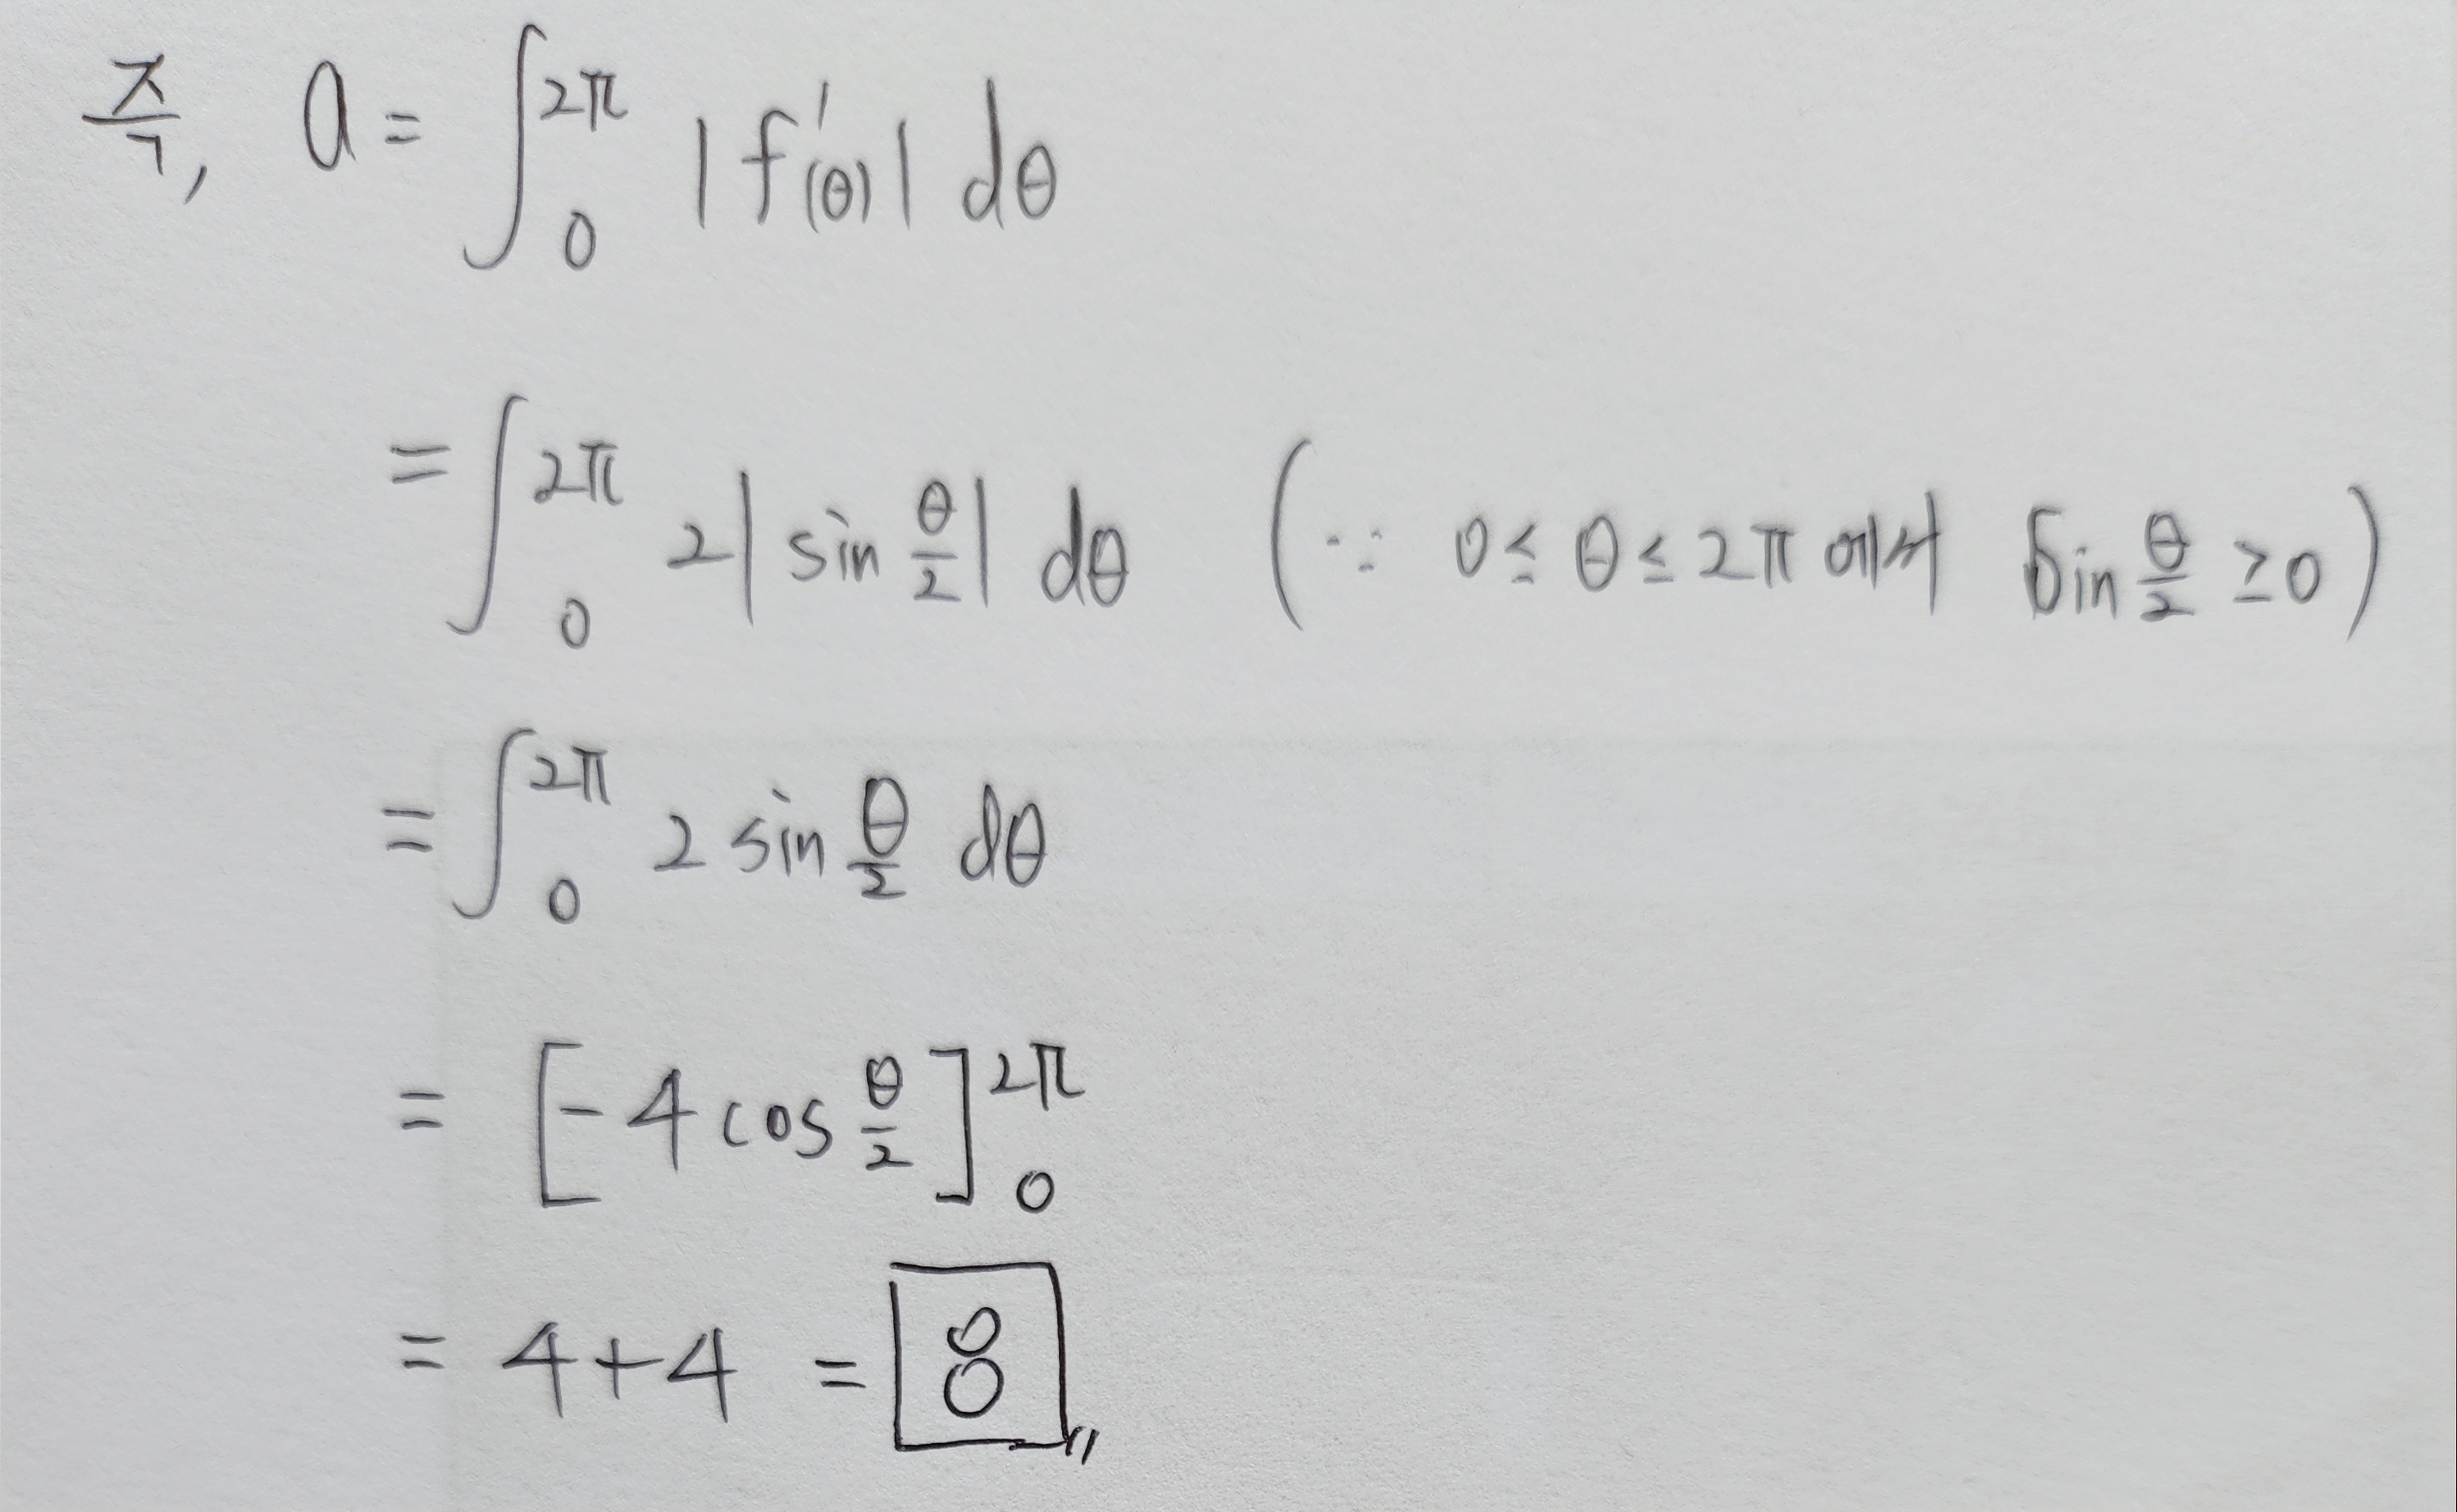 즉, a = ∫₀^{2π} |f'(θ)| dθ
= ∫₀^{2π} 2|sin θ/2| dθ (∵ 0 ≤ θ ≤ 2π 에서 sin θ/2 ≥ 0)
= ∫₀^{2π} 2 sin θ/2 dθ
= [-4 cos θ/2]₀^{2π}
= 4+4 = 8